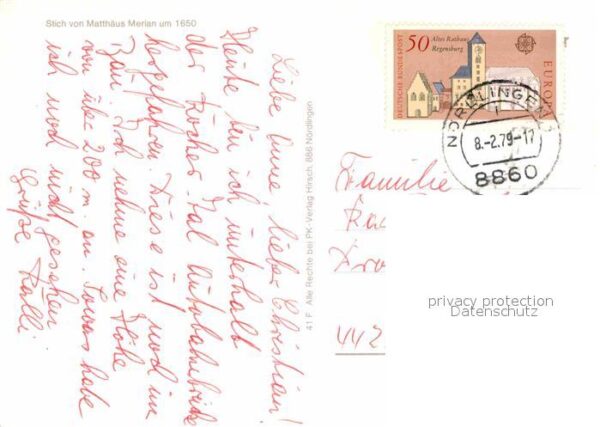 Stich von Matthäus Merian um 1650
Liebe Anne, lieber Christian!
Heute bin ich unterhalb
der Kocher-Tal Autobahnbrücke
hergefahren. Diese ist noch im
Bau. Ich nehme eine Höhe
von über 200 m. an. Sowas habe
ich noch nicht gesehen
Grüße
41 F Alle Rechte bei PK-Verlag Hirsch, 886 Nördlingen
DEUTSCHE BUNDESPOST
50
Altes Rathaus
Regensburg
EUROPA
NÖRDLINGEN
8.-2.79-17
8860
Familie
442
privacy protection
Datenschutz